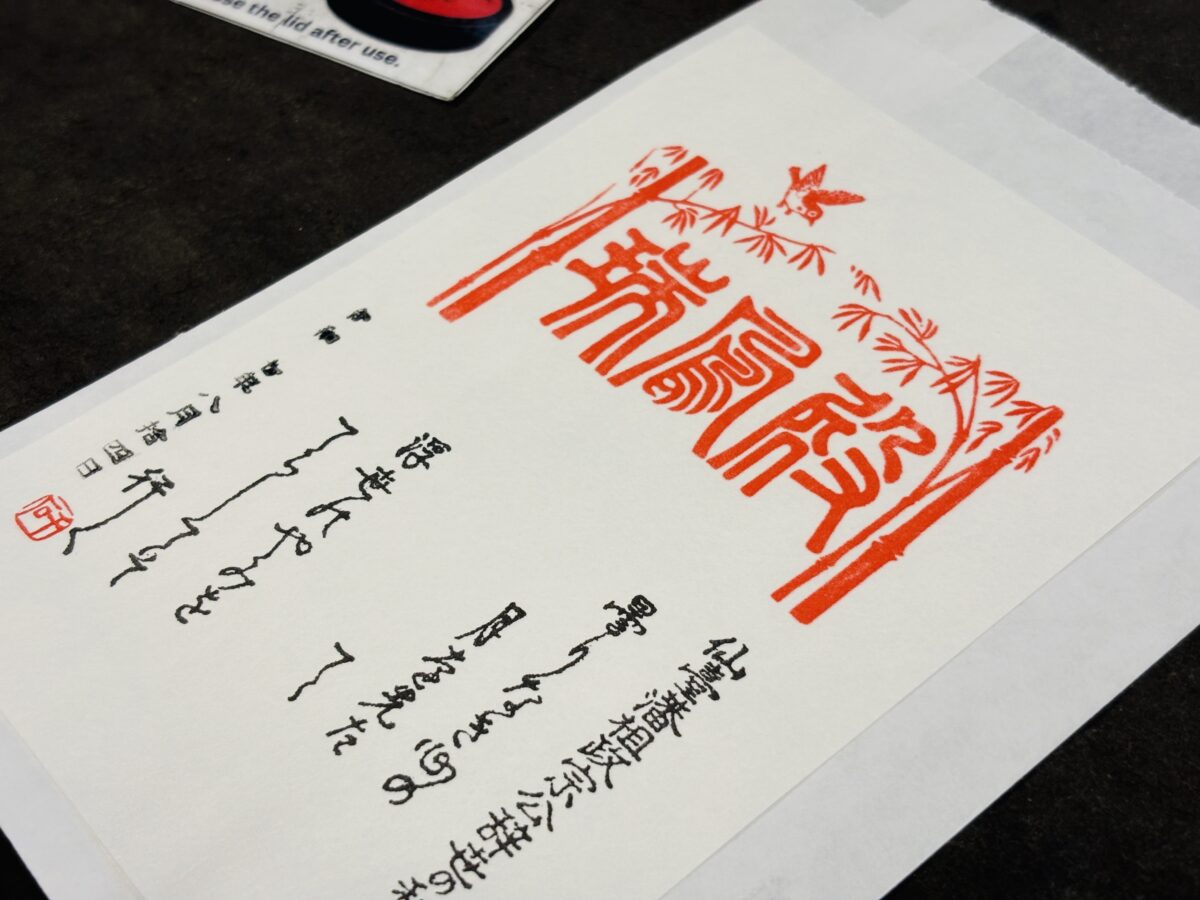 the lid after use.
瑞鳳殿
仙臺藩祖政宗公辞世の
曇りなき心の
月を先た
て
浮世のやみを
てらしてそ
行く
年八月拾四日